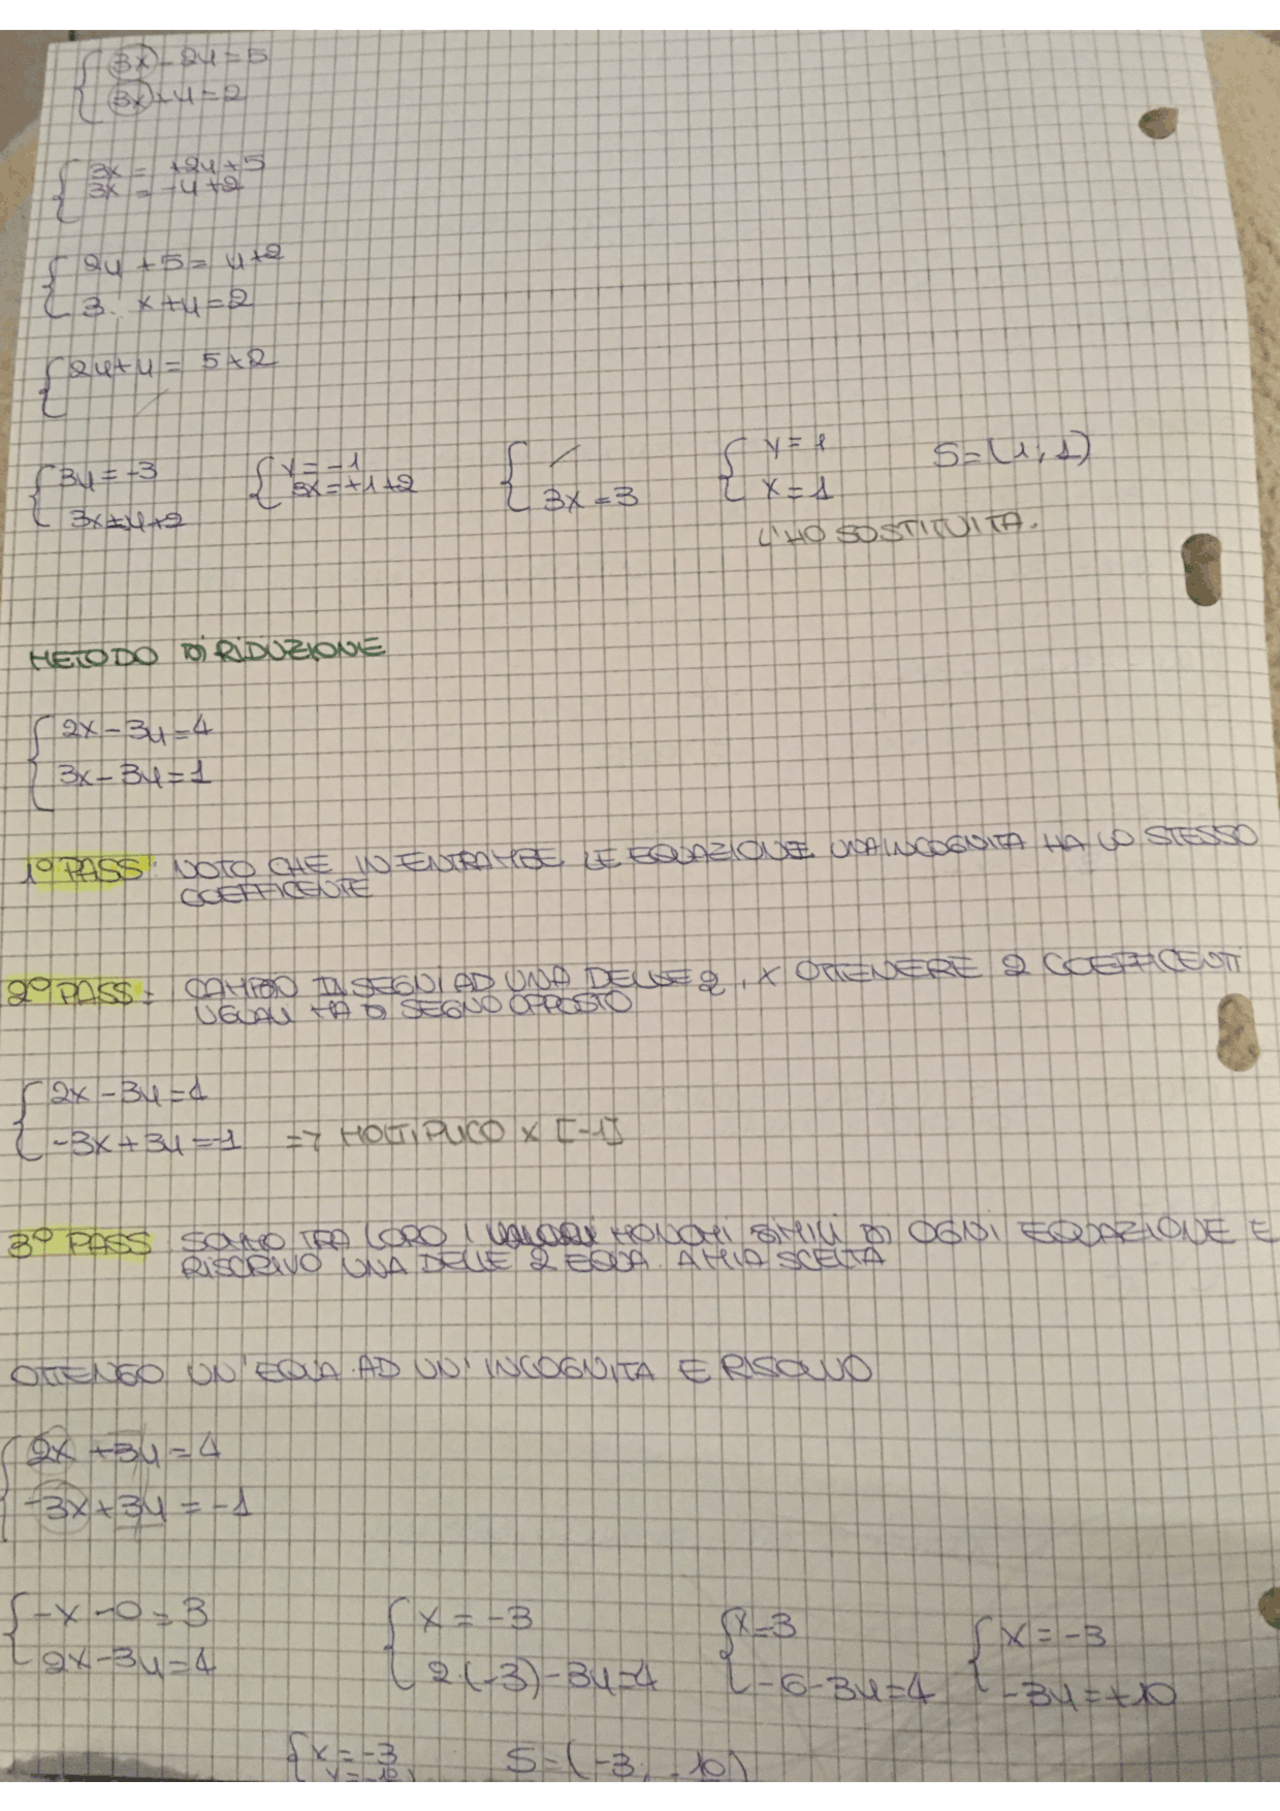 3x - 2y = 5
3x + y = 2
3x = +2y + 5
3x = -y + 2
2y + 5 = y + 2
3. x + y = 2
2y + y = 5 + 2
3y = -3
3x = y + 2
y = -1
3x = +1 + 2
3x = 3
y = 1
x = 1
S = (1; 1)
L'HO SOSTITUITA.
METODO DI RIDUZIONE
2x - 3y = 4
3x - 3y = 1
1° PASS: NOTO CHE IN ENTRAMBE LE EQUAZIONE UNA INCOGNITA HA LO STESSO
COEFFICENTE
2° PASS: CAMBIO DI SEGNI AD UNA DELLE 2, X OTTENERE 2 COEFFICENTI
UGUALI MA DI SEGNO OPPOSTO
2x - 3y = 4
-3x + 3y = -1 => MOLTIPLICO X [-1]
3° PASS SOMMO TRA LORO I MONOMI SIMILI DI OGNI EQUAZIONE E
RISCRIVO UNA DELLE 2 EQUA. A MIA SCELTA
OTTENGO UN'EQUA. AD UN'INCOGNITA E RISOLVO
2x + 3y = 4
-3x + 3y = -1
-x - 0 = 3
2x - 3y = 4
x = -3
2·(-3) - 3y = 4
x = 3
-6 - 3y = 4
x = -3
-3y = +10
x = -3
y = -10
S = (-3; -10)